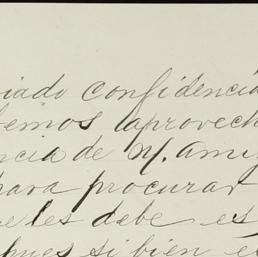 iado confidencia
bemos aprovech
ncia de N. Ami
para procurar
e les debe es
pues si bien e